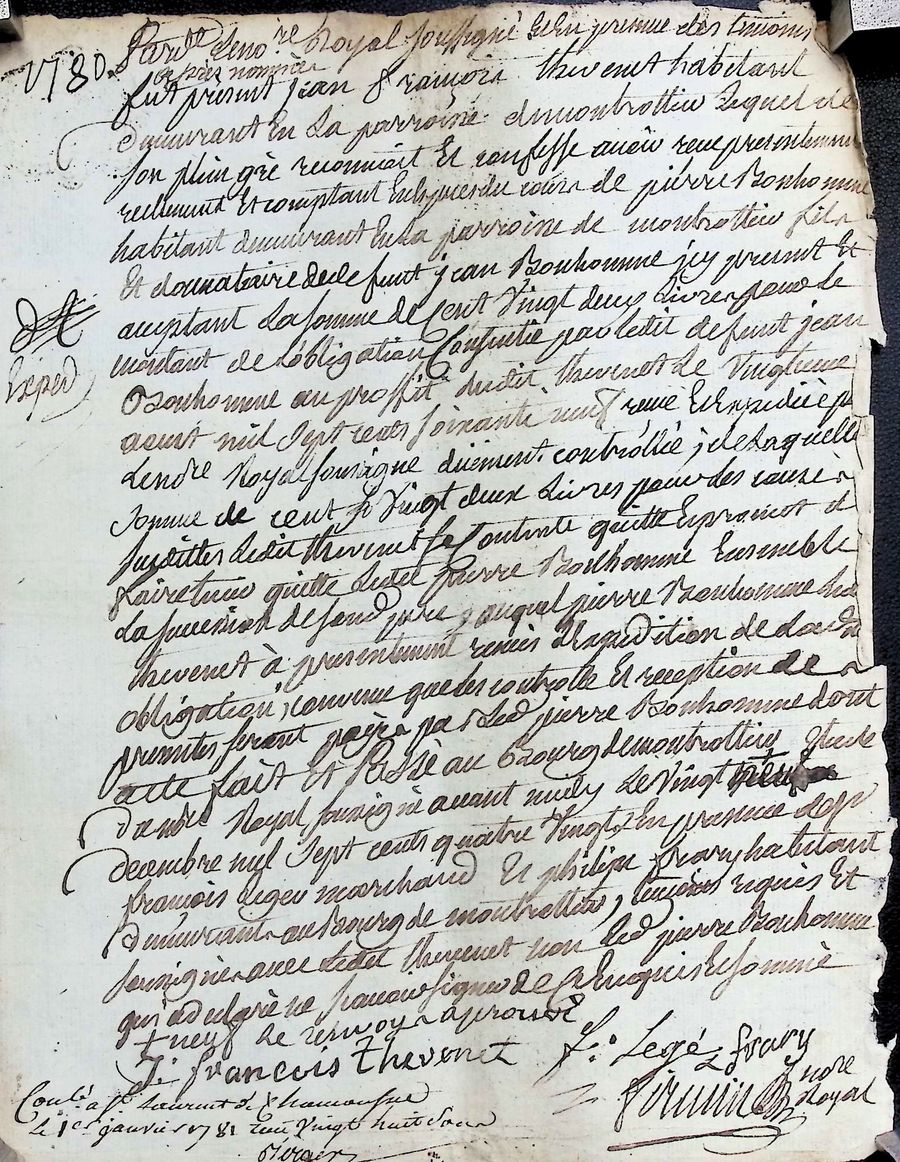 1780. Pard.t Le no.re Royal soussigné Et En presence des temoins
cy apres nommés
fut present jean François thevenet habitant
demeurant En La parroisse de montrottier Lequel de
son plein gré reconnoit Et confesse avoir reçu presentement
reelement Et comptant En Espece du cours de pierre Bonhomme
habitant demeurant En La parroisse de montrottier fils
Et donnataire de defunt jean Bonhomme icy present Et
acceptant La somme de Cent Vingt deux Livres pour Le
montant de L'obligation Consentie par Ledit defunt jean
Bonhomme au proffit dudit thevenet Le Vingt
aoust mil sept cents soixante neuf reçue Et Expediée p
Le no.re Royal soussigné duement controllée ; de Laquelle
somme de cent Vingt deux Livres pour Les causes
susdittes Ledit thevenet se Contente quitte Et promet de
faire tenir quitte Ledit pierre Bonhomme Ensemble
La succession de son d. pere ; auquel pierre Bonhomme Led
thevenet à presentement remis L'Expedition de Lad.
obligation ; convenu que Les controlle Et reception des
presentes seront payés par Led pierre Bonhomme dont
acte fait Et Passé au Bourg de montrottier Etude
du no.re Royal soussigné avant midy Le Vingt +
decembre mil sept cents quatre Vingt, En presence de s.r
françois Legé marchand Et philipe frary habitant
demeurants au Bourg de montrottier, temoins requis Et
soussignés avec Ledit thevenet non Led pierre Bonhomme
qui a declaré ne sçavoir signer de ce Enquis Et sommé
+ neuf Le renvoy aprouvé
J. françois thevenet F. Legé frary
no.re Royal
Exped
Conlé a S.t Laurent de Chamousset
Le 1.er janvier 1781 reçu Vingt huit sous